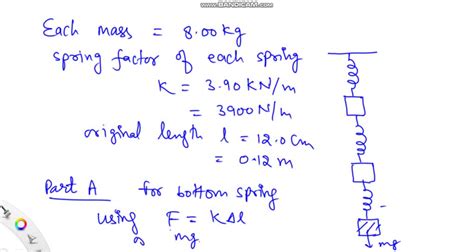 WWW.BANDICAM.COM
Each mass = 8.00kg
spring factor of each spring
K = 3.90 KN/m
= 3900 N/m
original length l = 12.0 Cm
= 0.12 m
Part A for bottom spring
using F = KΔl
mg
mg